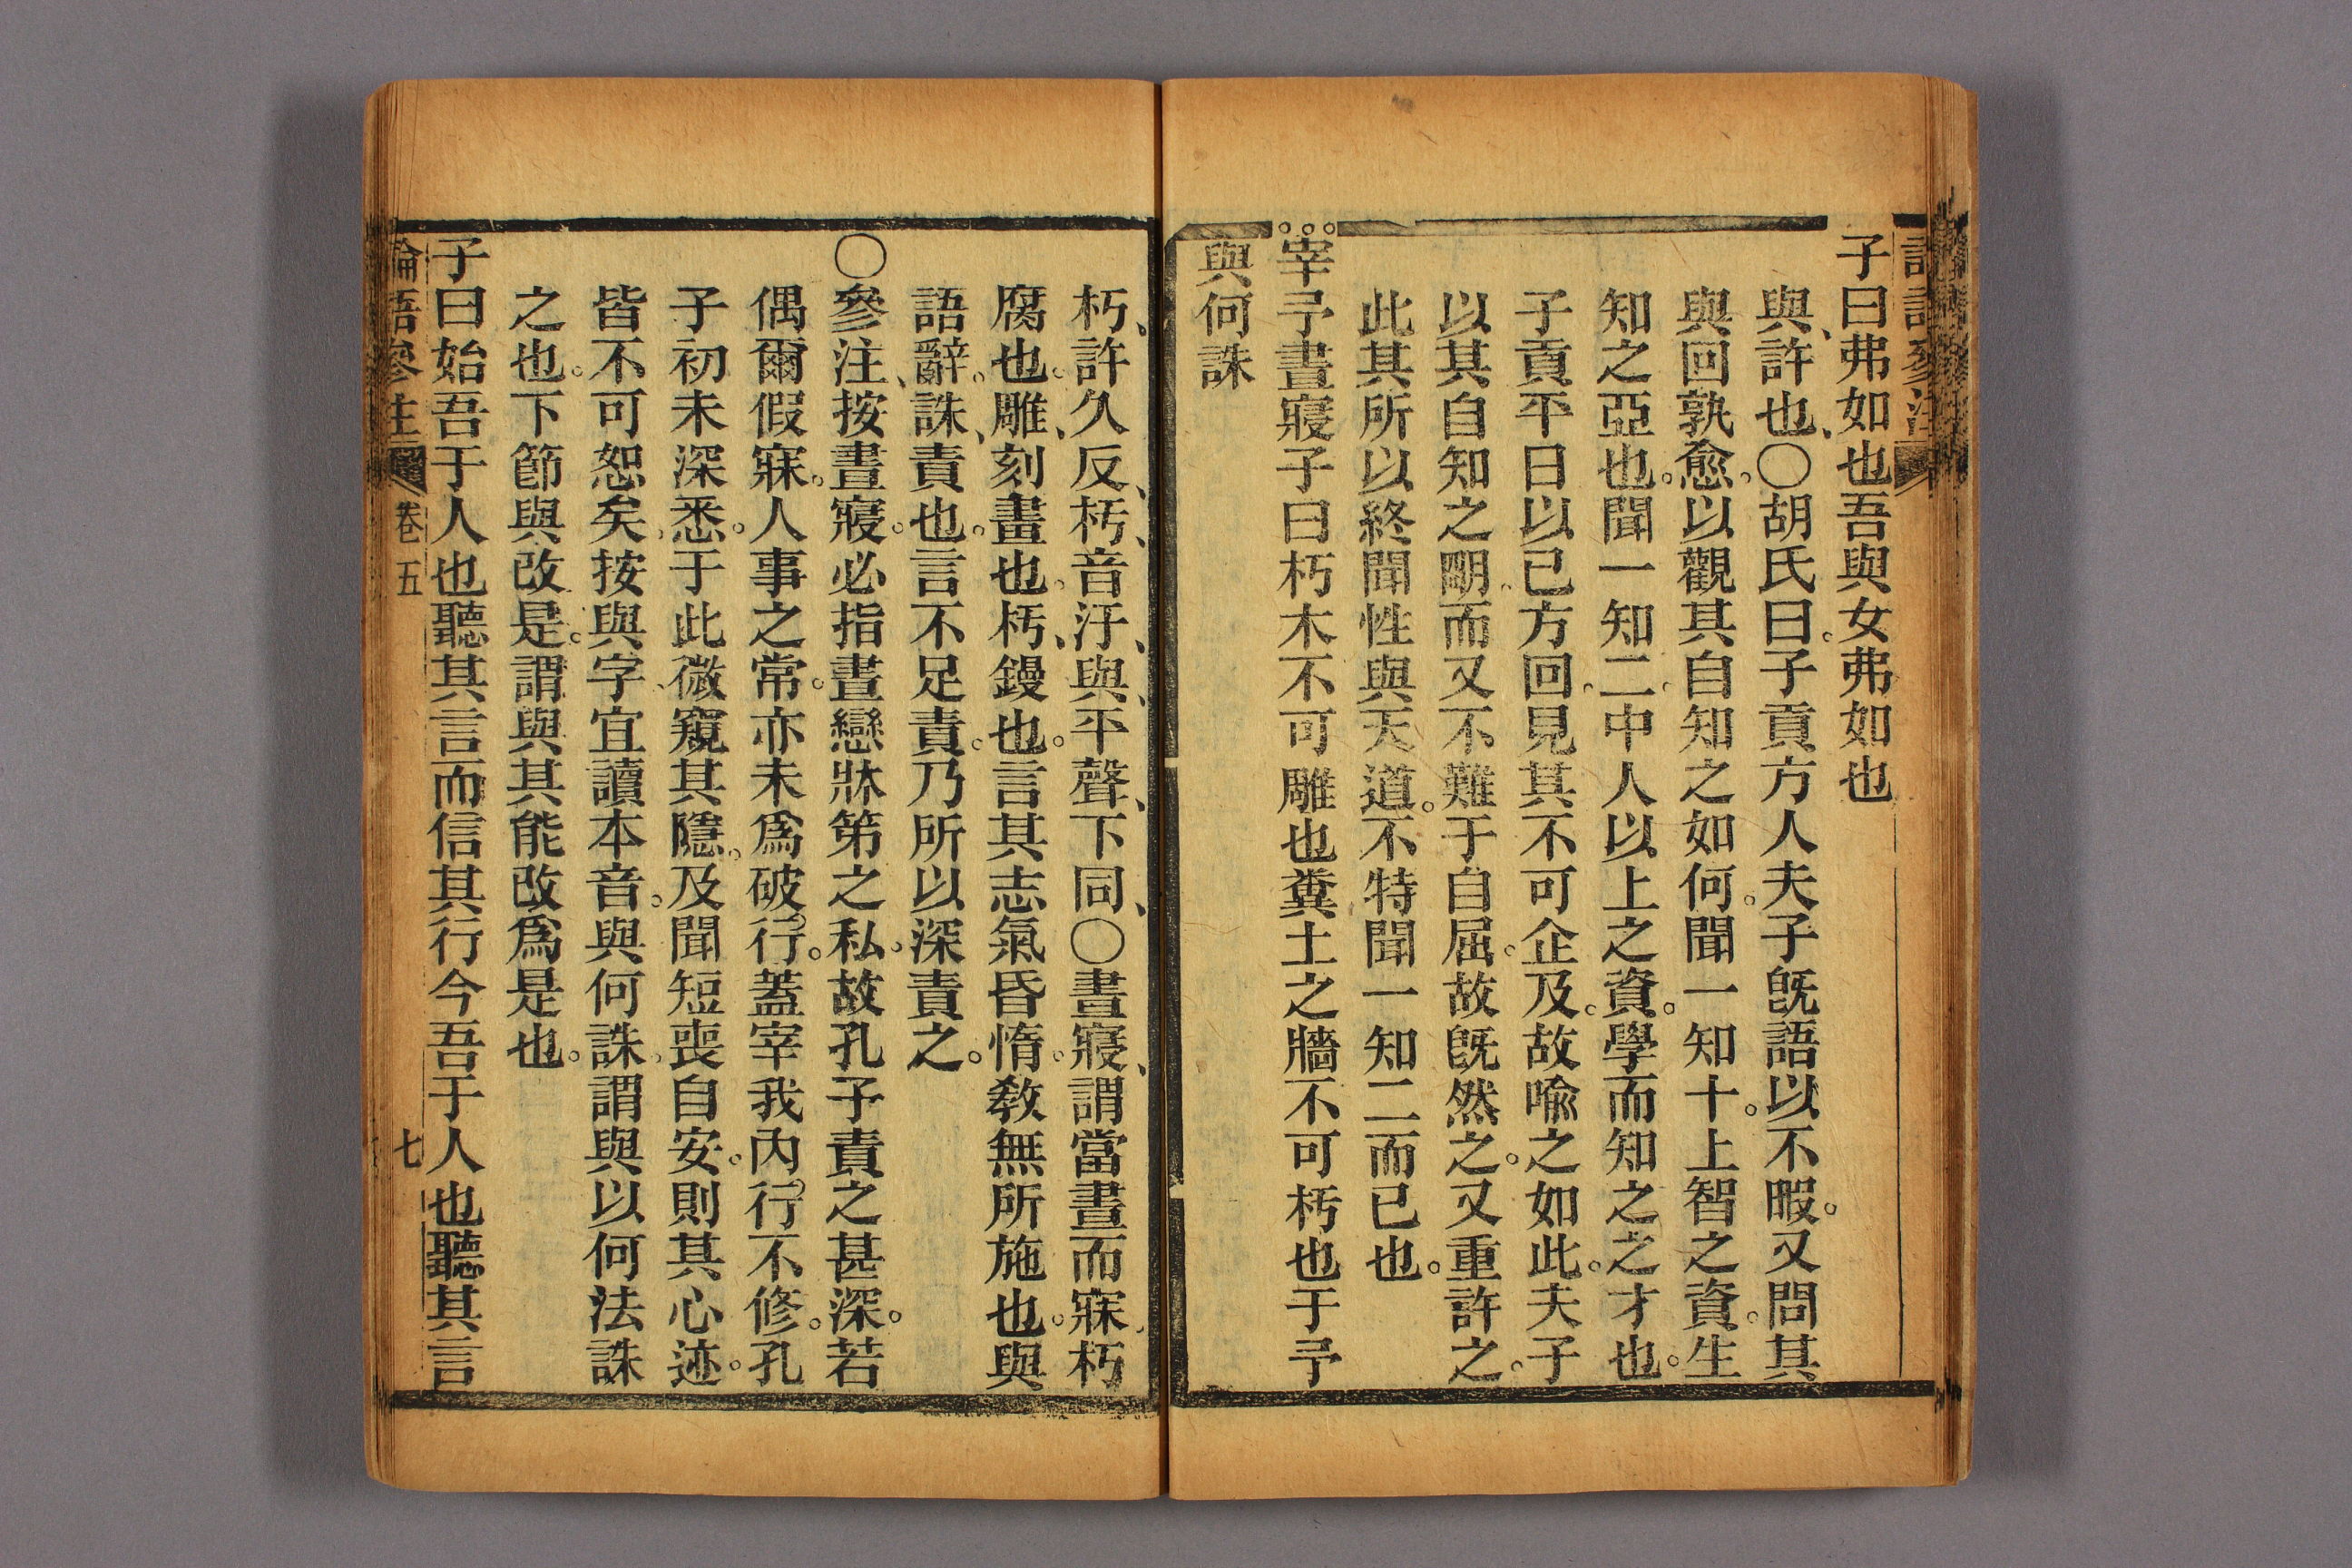 子曰弗如也吾與女弗如也
與、許也、○胡氏曰。子貢方人夫子旣語以不暇。又問其
與回孰愈。以觀其自知之如何。聞一知十。上智之資。生
知之亞也。聞一知二。中人以上之資。學而知之之才也。
子貢平日以己方回。見其不可企及。故喩之如此。夫子
以其自知之明。而又不難于自屈。故旣然之。又重許之。
此其所以終聞性與天道。不特聞一知二而已也。
宰予晝寢子曰朽木不可雕也糞土之牆不可杇也于予
與何誅
朽、許久反、杇、音汙、與、平聲、下同、○晝寢、謂當晝而寐、朽
腐也。雕、刻畫也。杇、鏝也。言其志氣昏惰。敎無所施也。與
語辭。誅、責也。言不足責。乃所以深責之。
○參注、按晝寢。必指晝戀牀笫之私。故孔子責之甚深。若
偶爾假寐。人事之常。亦未爲破行。蓋宰我內行不修。孔
子初未深悉。于此微窺其隱。及聞短喪自安。則其心迹。
皆不可恕矣。按與字宜讀本音。與何誅。謂與以何法誅
之也。下節與改是。謂與其能改爲是也。
子曰始吾于人也聽其言而信其行今吾于人也聽其言
論語參注 卷五 七